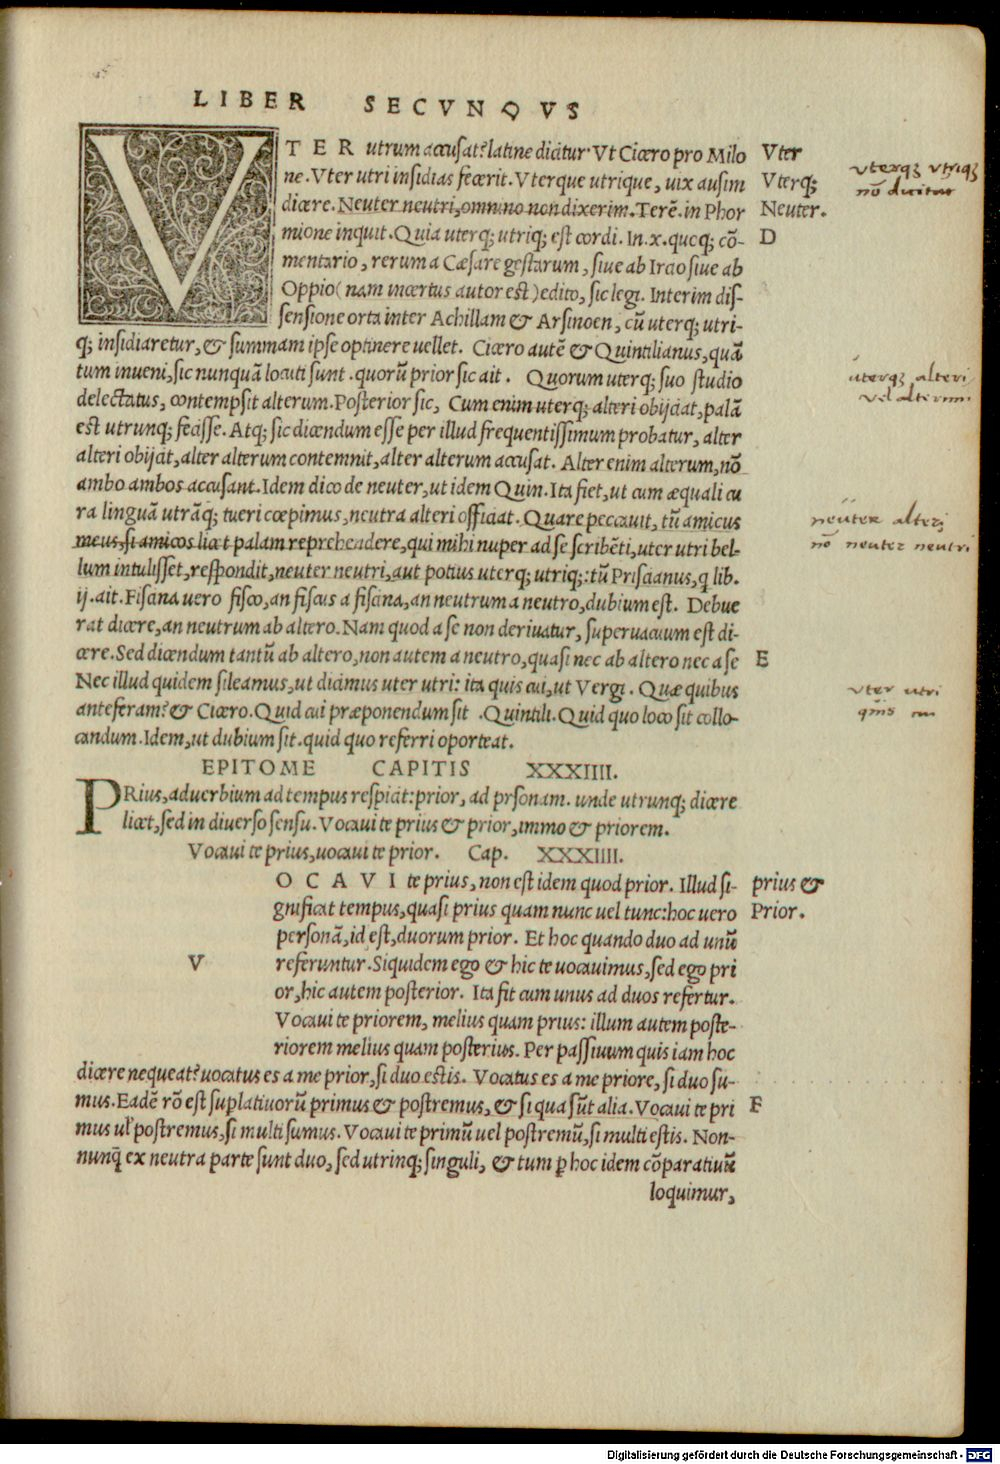 LIBER SECVNQVS
VTER utrum accusat? latine dicitur. Vt Cicero pro Milo Vter
ne. Vter utri insidias fecerit. Vterque utrique, uix ausim Vterq;
uterq; utriq;
nō dicitur
dicere. Neuter neutri, omnino non dixerim. Terē. in Phor Neuter.
mione inquit. Quia uterq; utriq; est cordi. In. x. quoq; cō- D
mentario, rerum a Cæsare gestarum, siue ab Irtio siue ab
Oppio (nam incertus autor est) edito, sic legi. Interim dis-
sensione orta inter Achillam & Arsinoen, cū uterq; utri-
q; insidiaretur, & summam ipse optinere uellet. Cicero autē & Quintilianus, quā
tum inueni, sic nunquā locuti sunt. quorū prior sic ait. Quorum uterq; suo studio
uterq; alteri
vel alterum
delectatus, contempsit alterum. Posterior sic, Cum enim uterq; alteri obijciat, palā
est utrunq; fecisse. Atq; sic dicendum esse per illud frequentissimum probatur, alter
alteri obijcit, alter alterum contemnit, alter alterum accusat. Alter enim alterum, nō
ambo ambos accusant. Idem dico de neuter, ut idem Quin. Ita fiet, ut cum æquali cu
ra linguā utrāq; tueri cœpimus, neutra alteri officiat. Quare peccauit, tū amicus
neuter alteri
nō neuter neutri
meus, si amicos licet palam reprehendere, qui mihi nuper ad se scribēti, uter utri bel-
lum intulisset, respondit, neuter neutri, aut potius uterq; utriq;: tū Priscianus, q lib.
ij. ait. Fiscina uero fisco, an fiscus a fiscina, an neutrum a neutro, dubium est. Debue
rat dicere, an neutrum ab altero. Nam quod a se non deriuatur, superuacuum est di-
cere. Sed dicendum tantū ab altero, non autem a neutro, quasi nec ab altero nec a se E
Nec illud quidem sileamus, ut dicimus uter utri: ita quis cui, ut Vergi. Quæ quibus
uter utri
quis cui
anteferam? & Cicero. Quid cui præponendum sit. Quintili. Quid quo loco sit collo-
candum. Idem, ut dubium sit. quid quo referri oporteat.
EPITOME CAPITIS XXXIIII.
PRius, aduerbium ad tempus respicit: prior, ad prsonam. unde utrunq; dicere
licet, sed in diuerso sensu. Vocaui te prius & prior, immo & priorem.
Vocaui te prius, uocaui te prior. Cap. XXXIIII.
VOCAVI te prius, non est idem quod prior. Illud si- prius &
gnificat tempus, quasi prius quam nunc uel tunc: hoc uero Prior.
personā, id est, duorum prior. Et hoc quando duo ad unū
referuntur. Siquidem ego & hic te uocauimus, sed ego pri
or, hic autem posterior. Ita fit cum unus ad duos refertur.
Vocaui te priorem, melius quam prius: illum autem poste-
riorem melius quam posterius. Per passiuum quis iam hoc
dicere nequeat? uocatus es a me prior, si duo estis. Vocatus es a me priore, si duo su-
mus. Eadē rō est suplatiuorū primus & postremus, & si qua sūt alia. Vocaui te pri F
mus ul postremus, si multi sumus. Vocaui te primū uel postremū, si multi estis. Non-
nunq̄ ex neutra parte sunt duo, sed utrinq; singuli, & tum p hoc idem cōparatiuū
loquimur,
Digitalisierung gefördert durch die Deutsche Forschungsgemeinschaft - DFG